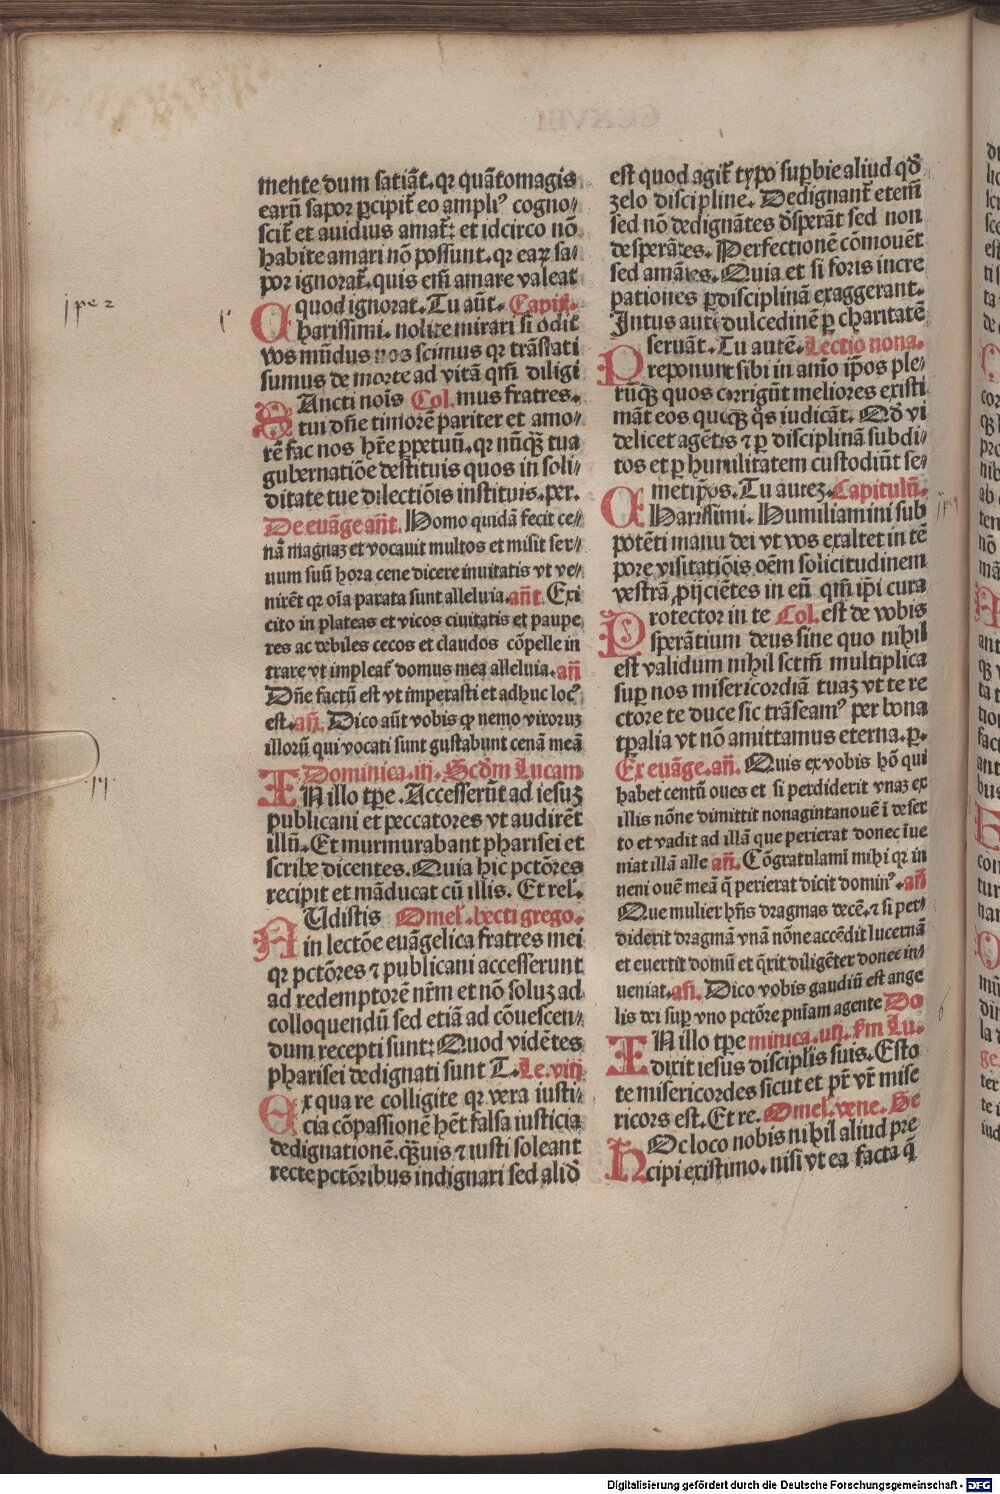 mente dum satiãt. qꝛ quãtomagis
earũ sapoꝛ ꝑcipit̃ eo ampliꝰ cogno⸗
scit̃ et auidius amat̃: et idcirco nõ
habite amari nõ possunt. qꝛ eaꝝ sa⸗
poꝛ ignoꝛat̃. quis em̃ amare valeat
quod ignoꝛat. Tu aũt. Capit̃.
Charissimi. nolite mirari si odit̃
vos mũdus nos scimus qꝛ trãslati
sumus de moꝛte ad vitã qm̃ diligi
SAncti noĩs Col. mus fratres.
tui dñe timoꝛẽ pariter et amo⸗
rẽ fac nos hr̃e ꝑpetuũ. qꝛ nũqꝫ̃ tua
gubernatiõe destituis quos in soli⸗
ditate tue dilectiõis instituis. per.
De euãge añt. Homo quidã fecit ce⸗
nã magnaꝫ et vocauit multos et misit ser⸗
uum suũ hoꝛa cene dicere inuitatis vt ve⸗
nirẽt qꝛ oĩa parata sunt alleluia. añt. Exi
cito in plateas et vicos ciuitatis et paupe
res ac debiles cecos et claudos cõpelle in
trare vt impleat̃ domus mea alleluia. añ
Dñe factũ est vt imperasti et adhuc locꝰ
est. añ. Dico aũt vobis ꝙ nemo viroꝛuꝫ
illoꝛũ qui vocati sunt gustabunt cenã meã
Dominica. iij. Scd̃m Lucam
IN illo tp̃e. Accesserũt ad iesuꝫ
publicani et peccatoꝛes vt audirẽt
illũ. Et murmurabant pharisei et
scribe dicentes. Quia hic pctõꝛes
recipit et mãducat cũ illis. Et rel̃.
AUdistis Omel̃. becti grego.
in lectõe euãgelica fratres mei
qꝛ pctõꝛes ⁊ publicani accesserunt
ad redemptoꝛẽ nr̃m et nõ soluꝫ ad
colloquendũ sed etiã ad cõuescen⸗
dum recepti sunt: Quod vidẽtes
pharisei dedignati sunt T. Le. viij
Ex qua re colligite qꝛ vera iusti⸗
cia cõpassionẽ hẽt falsa iusticia
dedignationẽ. qꝫ̃uis ⁊ iusti soleant
recte pctõꝛibus indignari sed aliđ
est quod agit̃ typo suꝑbie aliud qđ
zelo discipline. Dedignant̃ etem̃
sed nõ dedignãtes đsperãt sed non
desperãtes. Perfectionẽ cõmouẽt
sed amãtes. Quia et si foris incre
pationes ꝑ disciplinã exaggerant.
Intus autẽ dulcedinẽ ꝑ charitatẽ
seruãt. Tu autẽ. Lectio nona.
Preponunt sibi in anĩo ip̃os ple⸗
rũqꝫ quos coꝛrigũt melioꝛes existi
mãt eos quoqꝫ q̃s iudicãt. Qđ vi
delicet agẽtes ⁊ ꝑ disciplinã subdi⸗
tos et ꝑ humilitatem custodiũt se⸗
metip̃os. Tu auteꝫ. Capitulũ.
CHarissimi. Humiliamini sub
potẽti manu dei vt vos exaltet in tẽ
poꝛe visitatiõis oẽm solicitudinem
vestrã ꝓijciẽtes in eũ qm̃ ip̃i cura
Pꝛotectoꝛ in te Col. est de vobis
sperãtium deus sine quo nihil
est validum nihil sctm̃ multiplica
suꝑ nos misericoꝛdiã tuaꝫ vt te re
ctoꝛe te duce sic trãseamꝰ per bona
tp̃alia vt nõ amittamus eterna. ꝑ.
Ex euãge. añ. Quis ex vobis hõ qui
habet centũ oues et si perdiderit vnaꝫ ex
illis nõne dimittit nonagintanouẽ ĩ deser
to et vadit ad illã que perierat donec ĩue
niat illã alle añ. Cõgratulamĩ mihi qꝛ in
ueni ouẽ meã q̃ perierat dicit dominꝰ. añ
Que mulier hñs dragmas decẽ. ⁊ si per⸗
diderit dragmã vnã nõne accẽdit lucernã
et euertit domũ et q̃rit diligẽter donec in⸗
ueniat. añ. Dico vobis gaudiũ est ange
lis dei suꝑ vno pctõꝛe pñiam agente Do
IN illo tp̃e minica. iiij. ẜm Lu.
dixit iesus disciplis suis. Esto
te misericoꝛdes sicut et pr̃ vr̃ mise
ricoꝛs est. Et re. Omel̃. vene. Be
HOc loco nobis nihil aliud pre
cipi existimo. nisi vt ea facta q̃
Digitalisierung gefördert durch die Deutsche Forschungsgemeinschaft - DFG